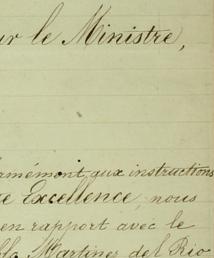 ur le Ministre,
formément aux instructions
e Excellence, nous
en rapport avec le
Martinez del Rio